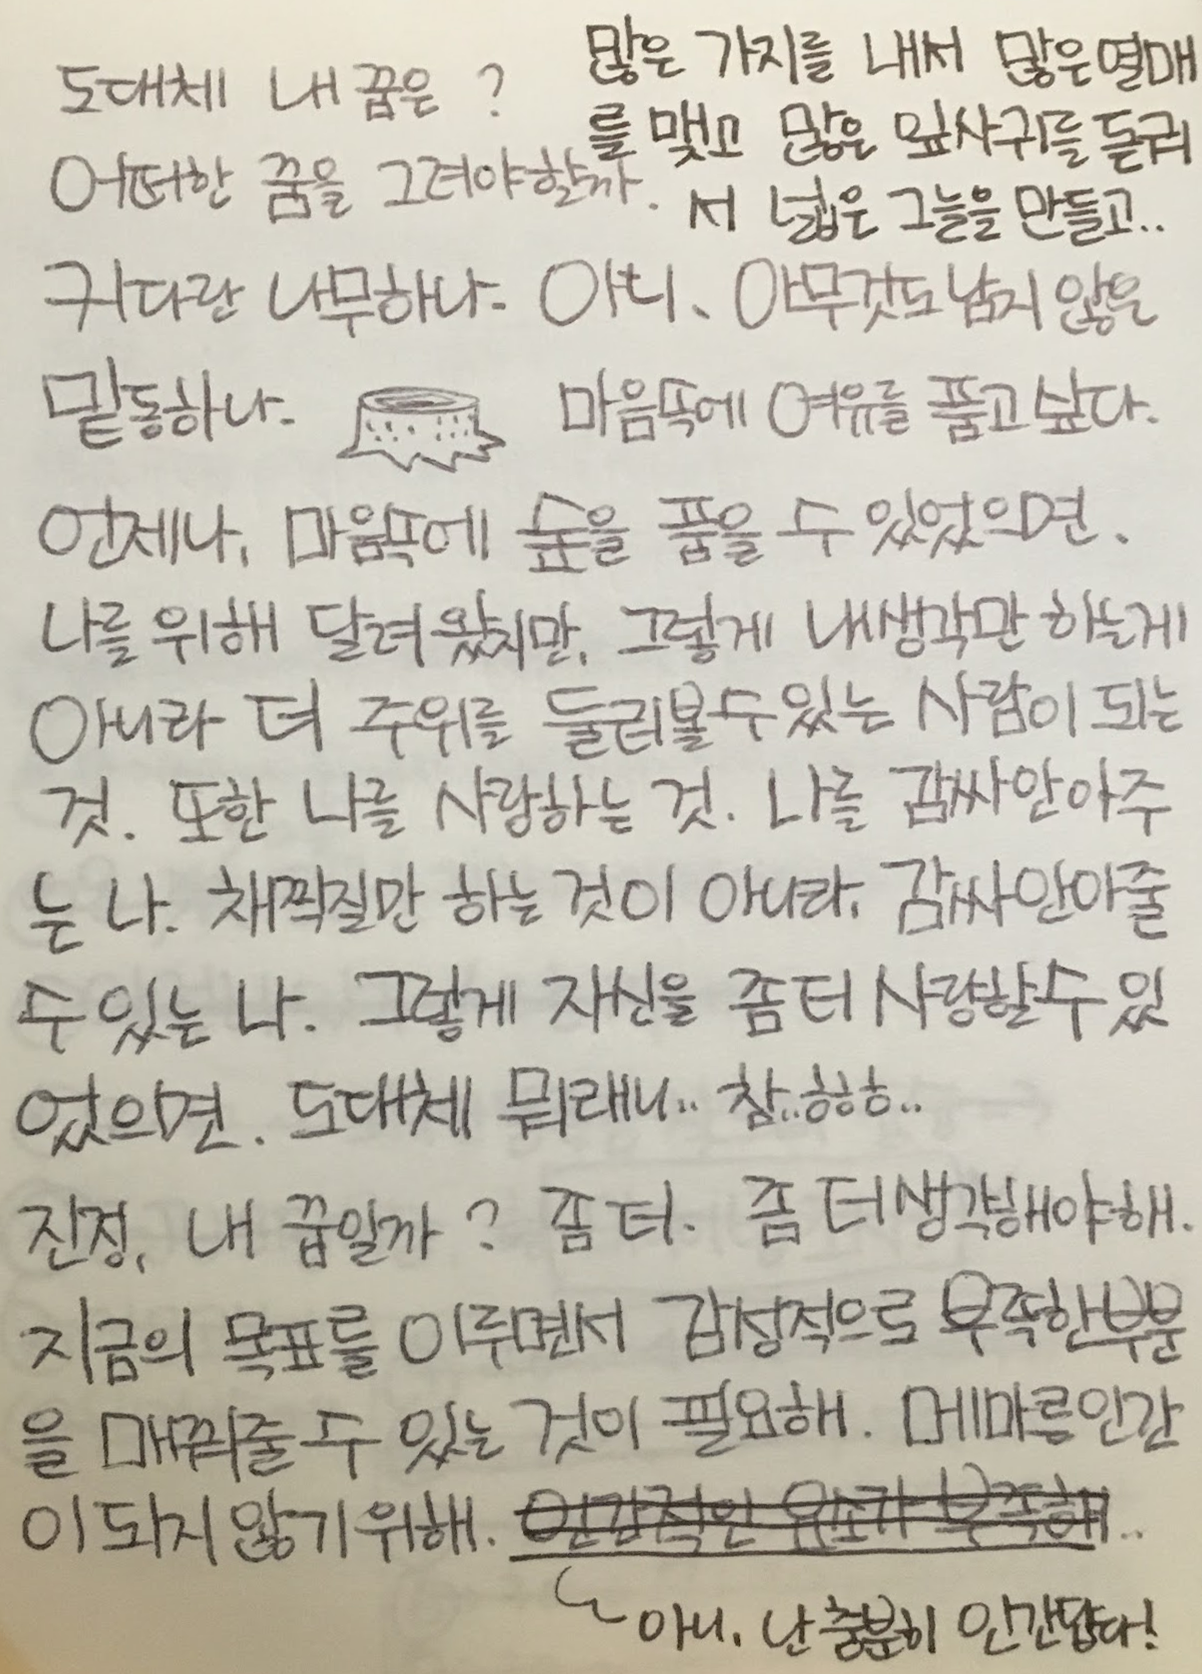 도대체 내 꿈은?
어떠한 꿈을 그려야할까.
많은 가지를 내서 많은 열매
를 맺고 많은 잎사귀를 돋궈
서 넓은 그늘을 만들고..
커다란 나무하나. 아니, 아무것도 남지 않은
밑동하나. 마음속에 여유를 품고 싶다.
언제나, 마음속에 숲을 품을 수 있었으면.
나를 위해 달려왔지만, 그렇게 내생각만 하는게
아니라 더 주위를 둘러볼 수 있는 사람이 되는
것. 또한 나를 사랑하는 것. 나를 감싸안아주
는 나. 채찍질만 하는 것이 아니라, 감싸안아줄
수 있는 나. 그렇게 자신을 좀 더 사랑할 수 있
었으면. 도대체 뭐래니.. 참..하하..
진정, 내 꿈일까? 좀 더. 좀 더 생각해야해.
지금의 목표를 이루면서 감성적으로 부족한 부분
을 매꿔줄 수 있는 것이 필요해. 메마른 인간
이 되지 않기 위해. 인간적인 요소가 부족해..
아니, 난 충분히 인간답다!